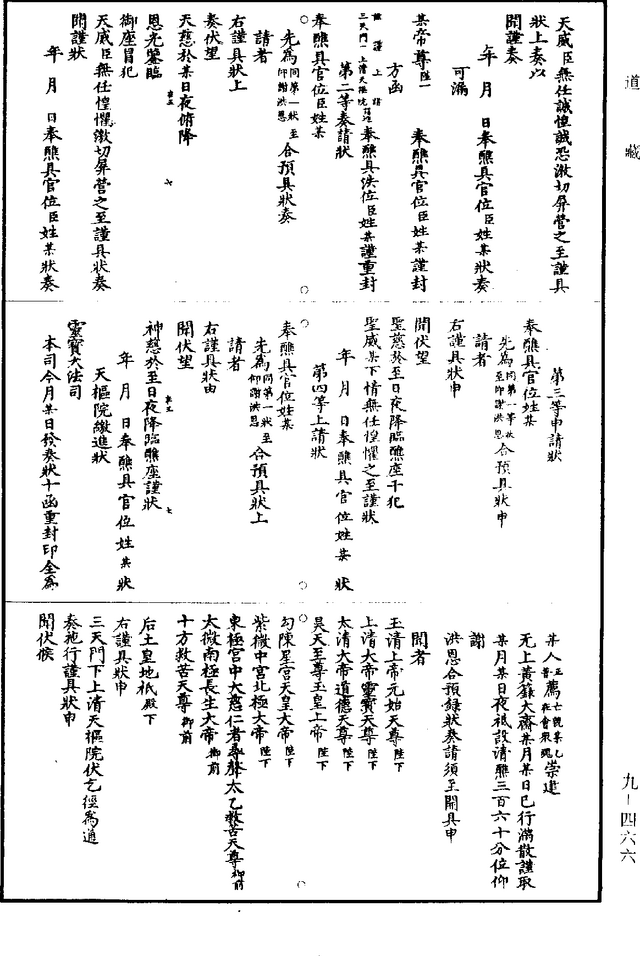 道藏
天威臣無任誠惶誠恐激切屏營之至謹具
狀上奏以
聞謹奏
年　月　日奉醮具官位臣姓某狀奏
可漏
某帝尊陛一　奉醮具官位臣姓某謹封
方函
謹謹上請
三天門下上清天樞院奉醮具法位臣姓某謹重封
第二等奏請狀
奉醮具官位臣姓某
先為同第一狀至仰謝洪恩合預具狀奏
請者
右謹具狀上
奏伏望
天慈於某日夜俯降
恩光鑒臨
御座冒犯
天威臣無任惶懼激切屏營之至謹具狀奏
聞謹狀
年　月　日奉醮具官位臣姓某狀奏
第三等申請狀
奉醮具官位姓某
先為同第一等狀至仰謝洪恩合預具狀申
請者
右謹具狀申
聞伏望
聖慈於至日夜降臨醮座干犯
聖威某下情無任惶懼之至謹狀
年　月　日奉醮具官位姓某狀
第四等上請狀
奉醮具官位姓某
先為同第一狀至仰謝洪恩合預具狀上
請者
右謹具狀由
聞伏望
神慈於至日夜降臨醮座謹狀
年　月　日奉醮具官位姓某狀
天樞院繳進狀
靈寶大法司
本司今月某日發奏狀十函重封印全為
某人正薦亡號某乙普在會眾魂崇建
无上黃籙大齋某月某日已行滿散謹取
某月某日夜祗設清醮三百六十分位仰
謝
洪恩合預錄狀奏請須至開具申
聞者
玉清上帝元始天尊陛下
上清大帝靈寶天尊陛下
太清大帝道德天尊陛下
昊天至尊玉皇上帝陛下
勾陳星宮天皇大帝陛下
紫微中宮北極大帝陛下
東極宮中大慈仁者尋聲太乙救苦天尊御前
太微南極長生大帝御前
十方救苦天尊御前
后土皇地祇殿下
右謹具狀申
三天門下上清天樞院伏乞徑為通
奏施行謹具狀申
聞伏候
九-四六六